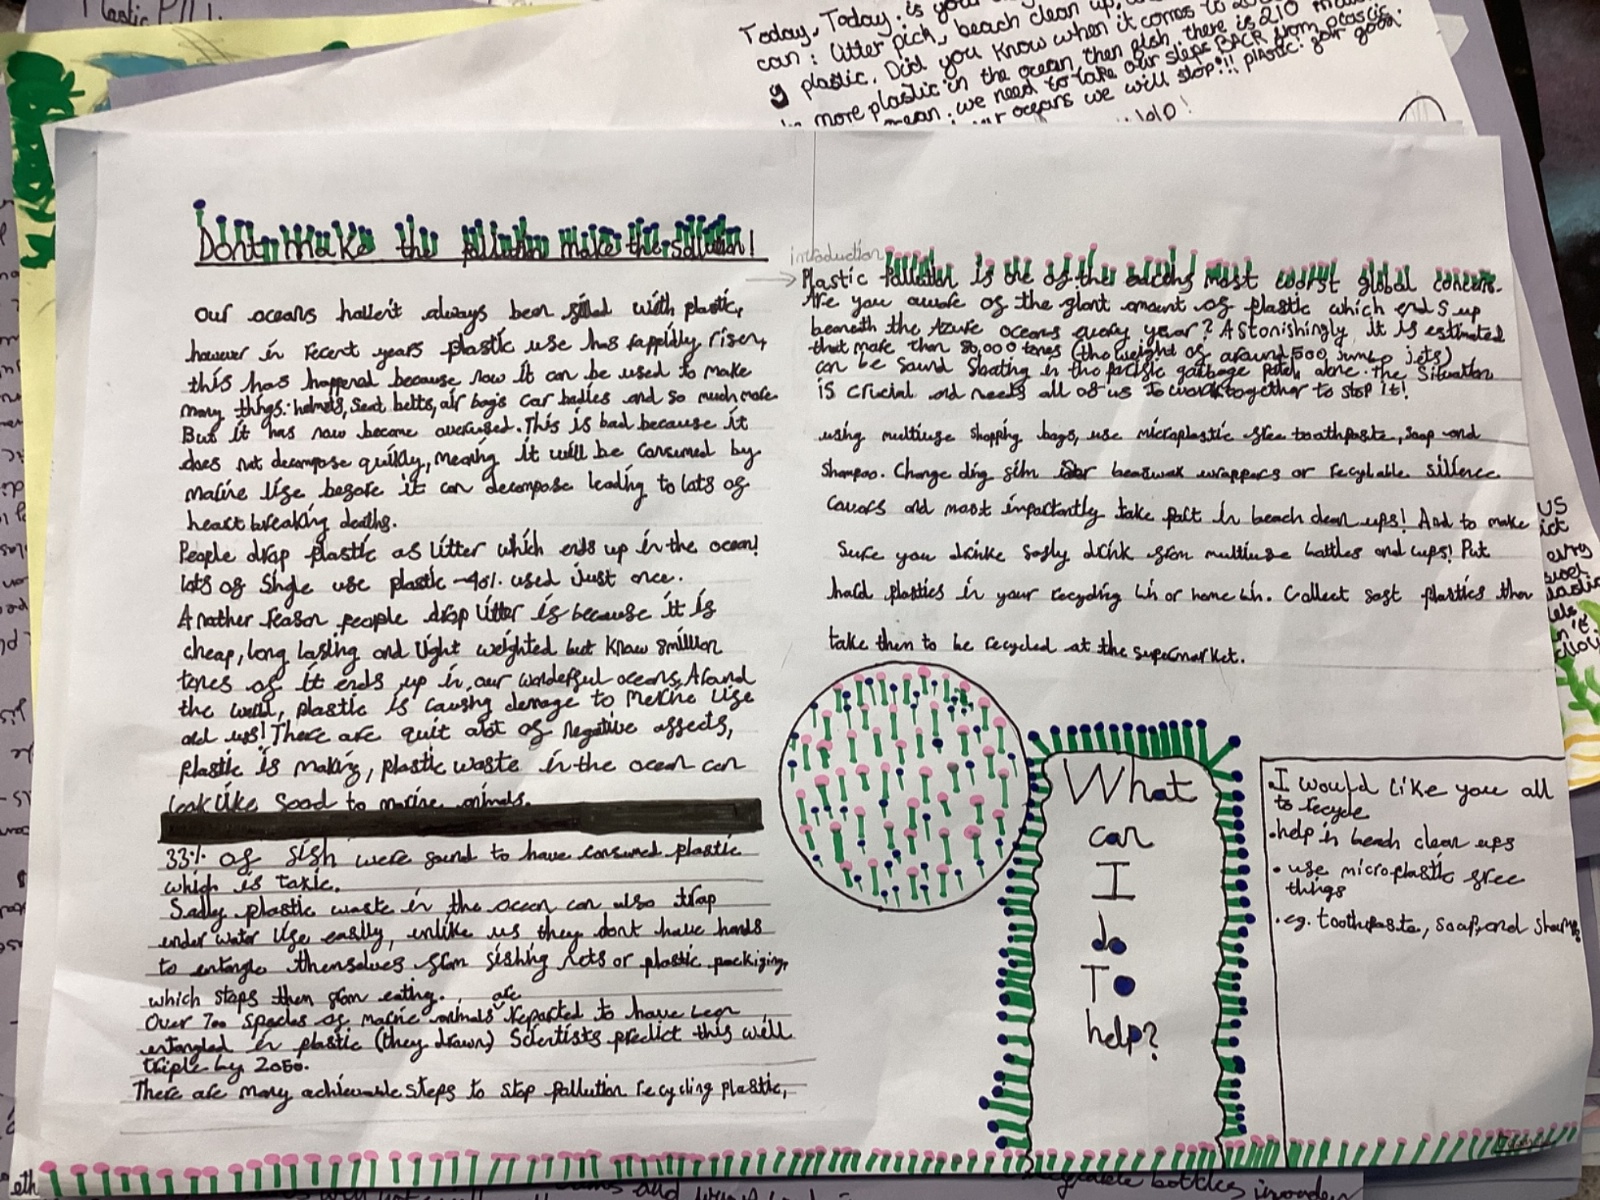 Today, Today: is your
can: litter pick, beach clean up,
plastic. Did you know when it comes to
more plastic in the ocean then fish, there is 210
mean: we need to take our steps BACK from plastic
oceans we will stop!!! plAstic! for good
Dont make the pollution make the solution!
our oceans haven't always been filled with plastic,
however in recent years plastic use has rappidly risen,
this has happend because now it can be used to make
many things: helmets, seat belts, air bags car baddies and so much more
But it has now become overused. This is bad because it
does not decompose quilkly, meaning it will be consumed by
marine life before it can decompose leading to lots of
heart breaking deaths.
People drop plastic as litter which ends up in the ocean!
lots of single use plastic -40% used just once.
Another reason people drop litter is because it is
cheap, long lasting and light weighted but know 8million
tones of it ends up in our wonderful oceans. Around
the world, plastic is causing damage to Merine life
and us! There are quit alot of negative affects,
plastic is making, plastic waste in the ocean can
look like food to marine animals.
33% of fish were found to have consumed plastic
which is toxic.
Sadly plastic waste in the ocean can also trap
under water life easily, unlike us they dont have hands
to entangle themselves from fishing nets or plastic packiging,
which stops them from eating.
are
Over 700 species of marine animals reported to have been
entangled in plastic (they drown) Scientists predict this will
triple by 2050.
There are many achievable steps to stop pollution recycling plastic,
introduction
Plastic Pollution is one of the most worst global concerns.
Are you aware of the giant amount of plastic which ends up
beneath the Azure oceans every year? Astonishingly it is estimated
that more than 80,000 tones (the weight of around 500 jumbo jets)
can be found floating in the pacific garbage patch, alone. The situation
is crucial and needs all of us to work together to stop it!
using multiuse shopping bags, use microplastic free toothpaste, soap and
shampoo. Change cling film for beeswax wrappers or recylable
covors and most importantly take part in beach clean ups! And to make
sure you drinke safly drink from multiuse bottles and cups! Put
hard plastics in your recycling bin or home bin. Collect soft plastics then
take them to be recycled at the supermarket.
What
can
I
do
To
help?
• I would like you all
to recycle
• help in beach clean ups
• use microplastic free
things
• eg. toothpaste, soap, and
bottles